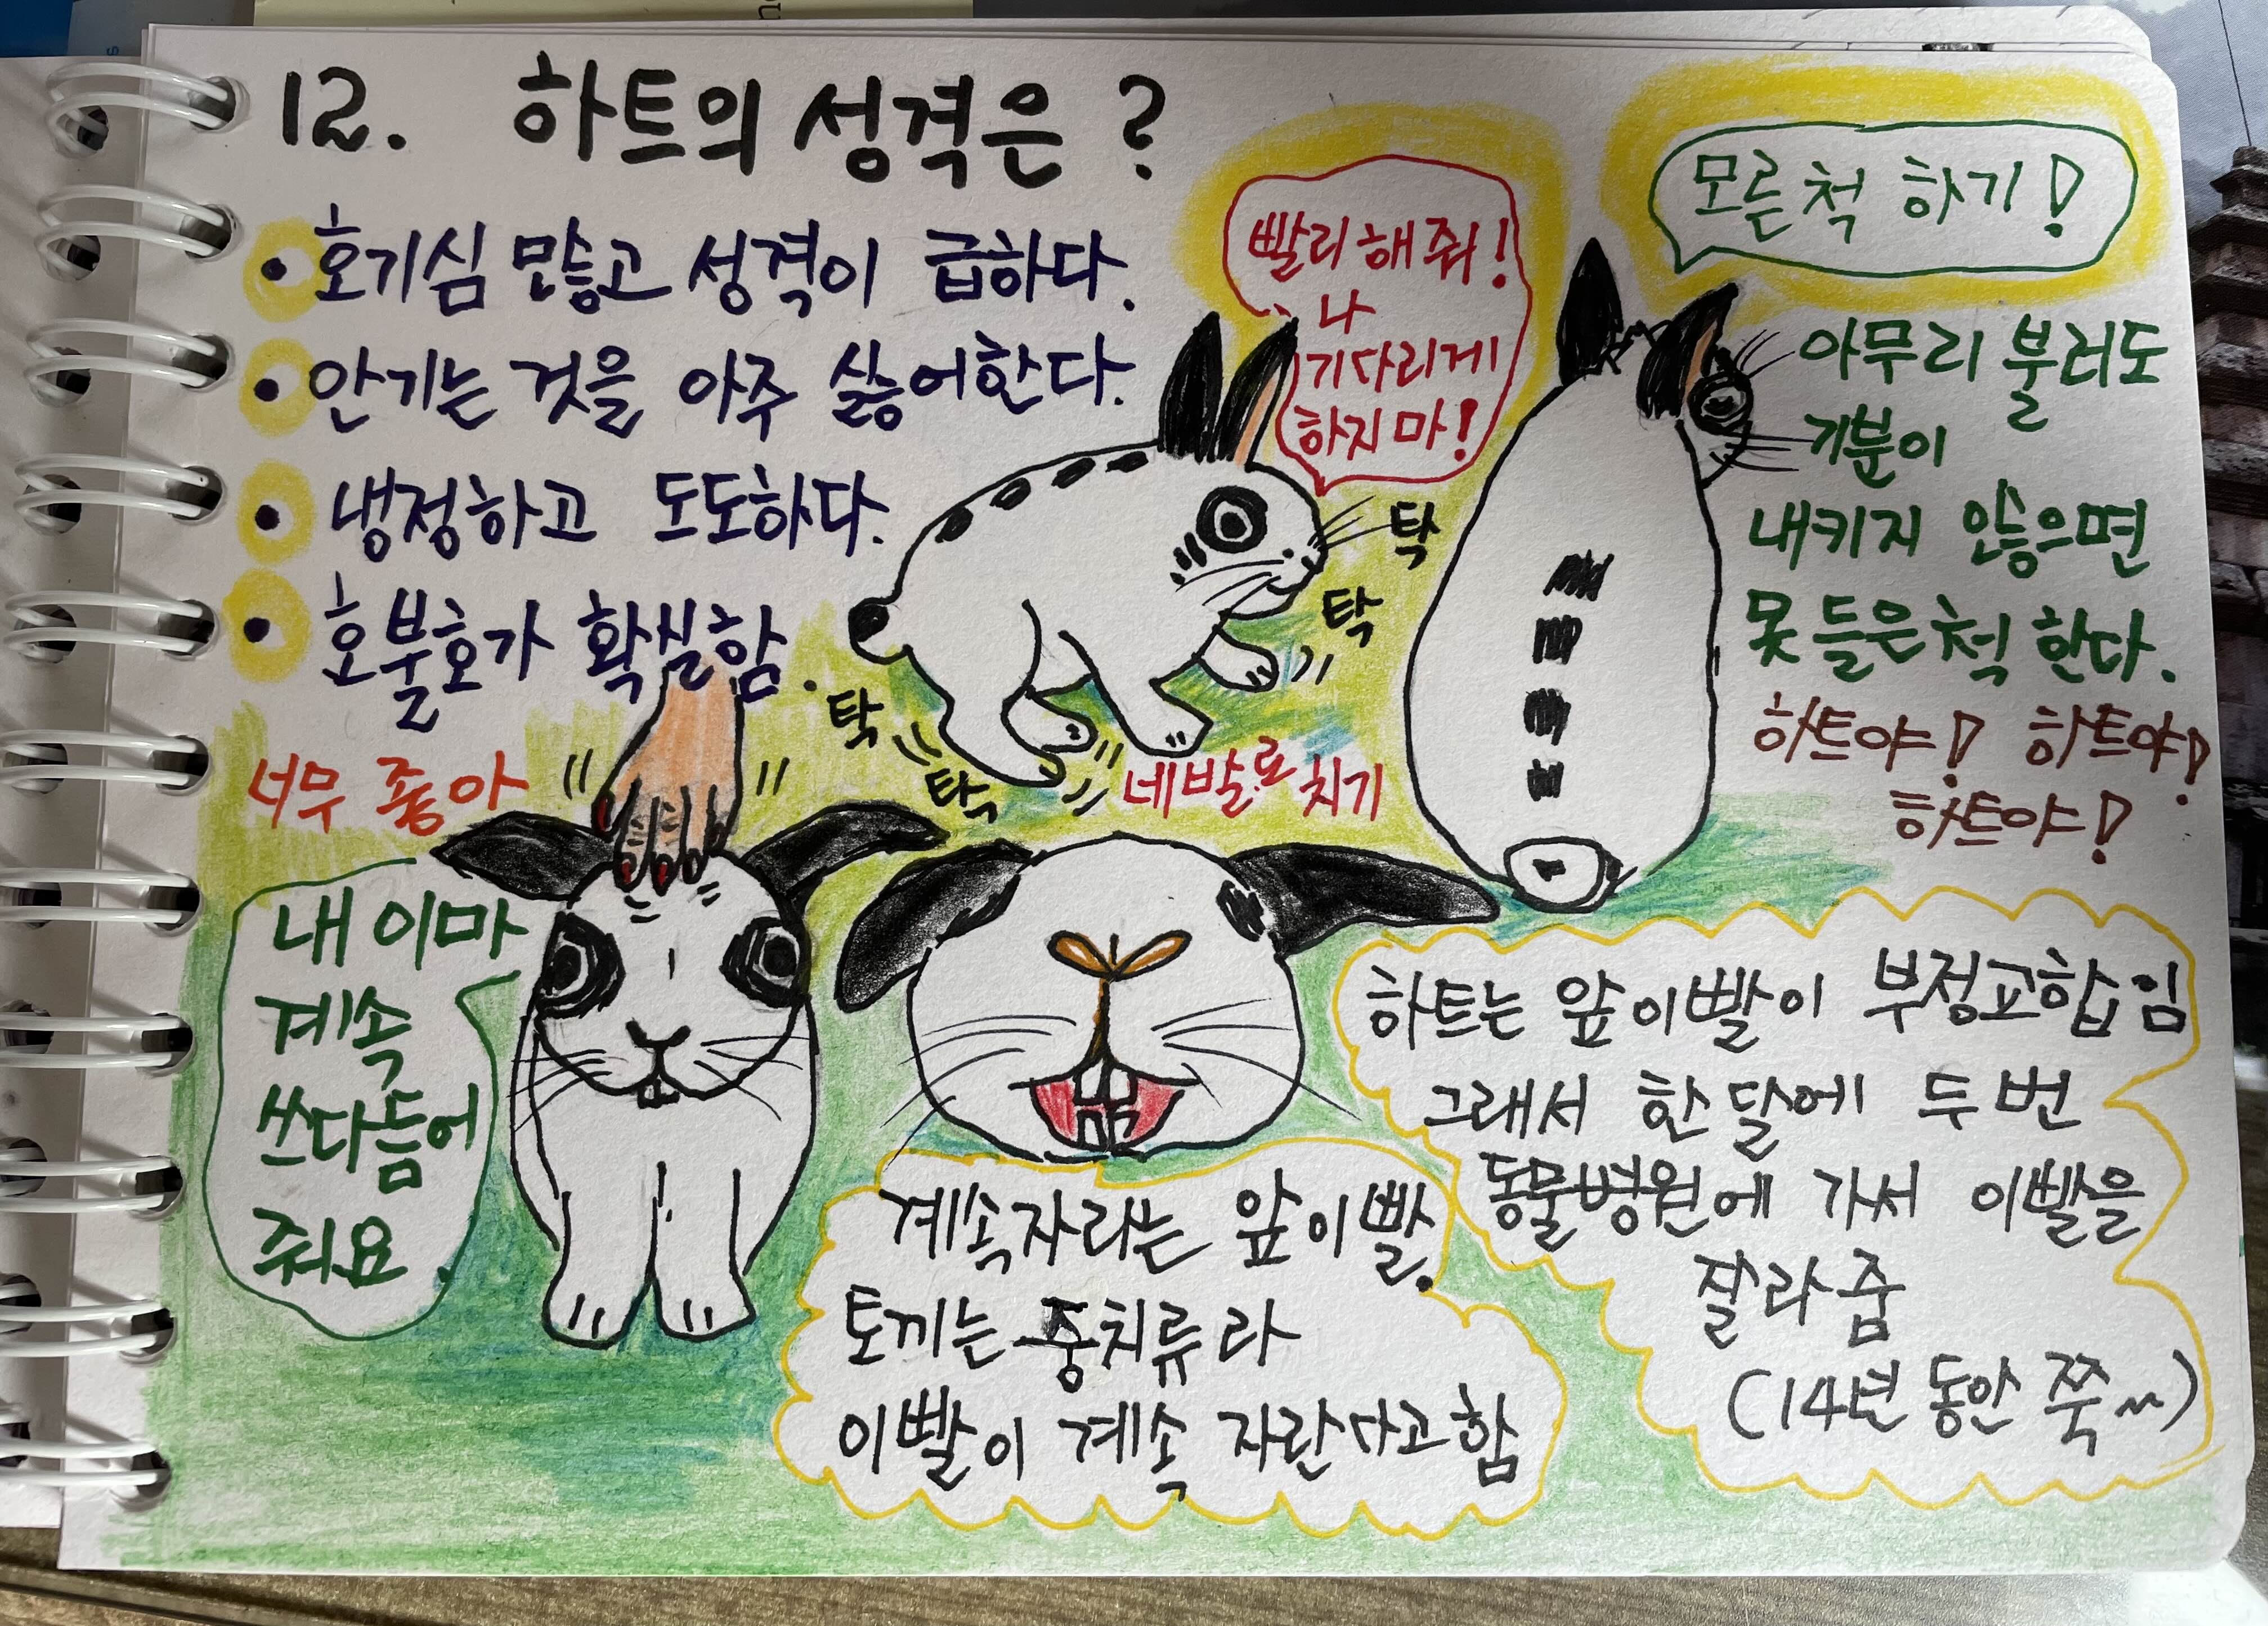 12. 하트의 성격은?
• 호기심 많고 성격이 급하다.
• 안기는 것을 아주 싫어한다.
• 냉정하고 도도하다.
• 호불호가 확실함.
빨리해줘!
나
기다리게
하지마!
탁
탁
탁
탁
네발로 치기
모른척 하기!
아무리 불러도
기분이
내키지 않으면
못들은척 한다.
하트야! 하트야!
하트야!
너무 좋아
내 이마
계속
쓰다듬어
줘요.
계속자라는 앞이빨.
토끼는 중치류라
이빨이 계속 자란다고함
하트는 앞이빨이 부정교합임
그래서 한달에 두번
동물병원에 가서 이빨을
잘라줌
(14년 동안 쭉~)